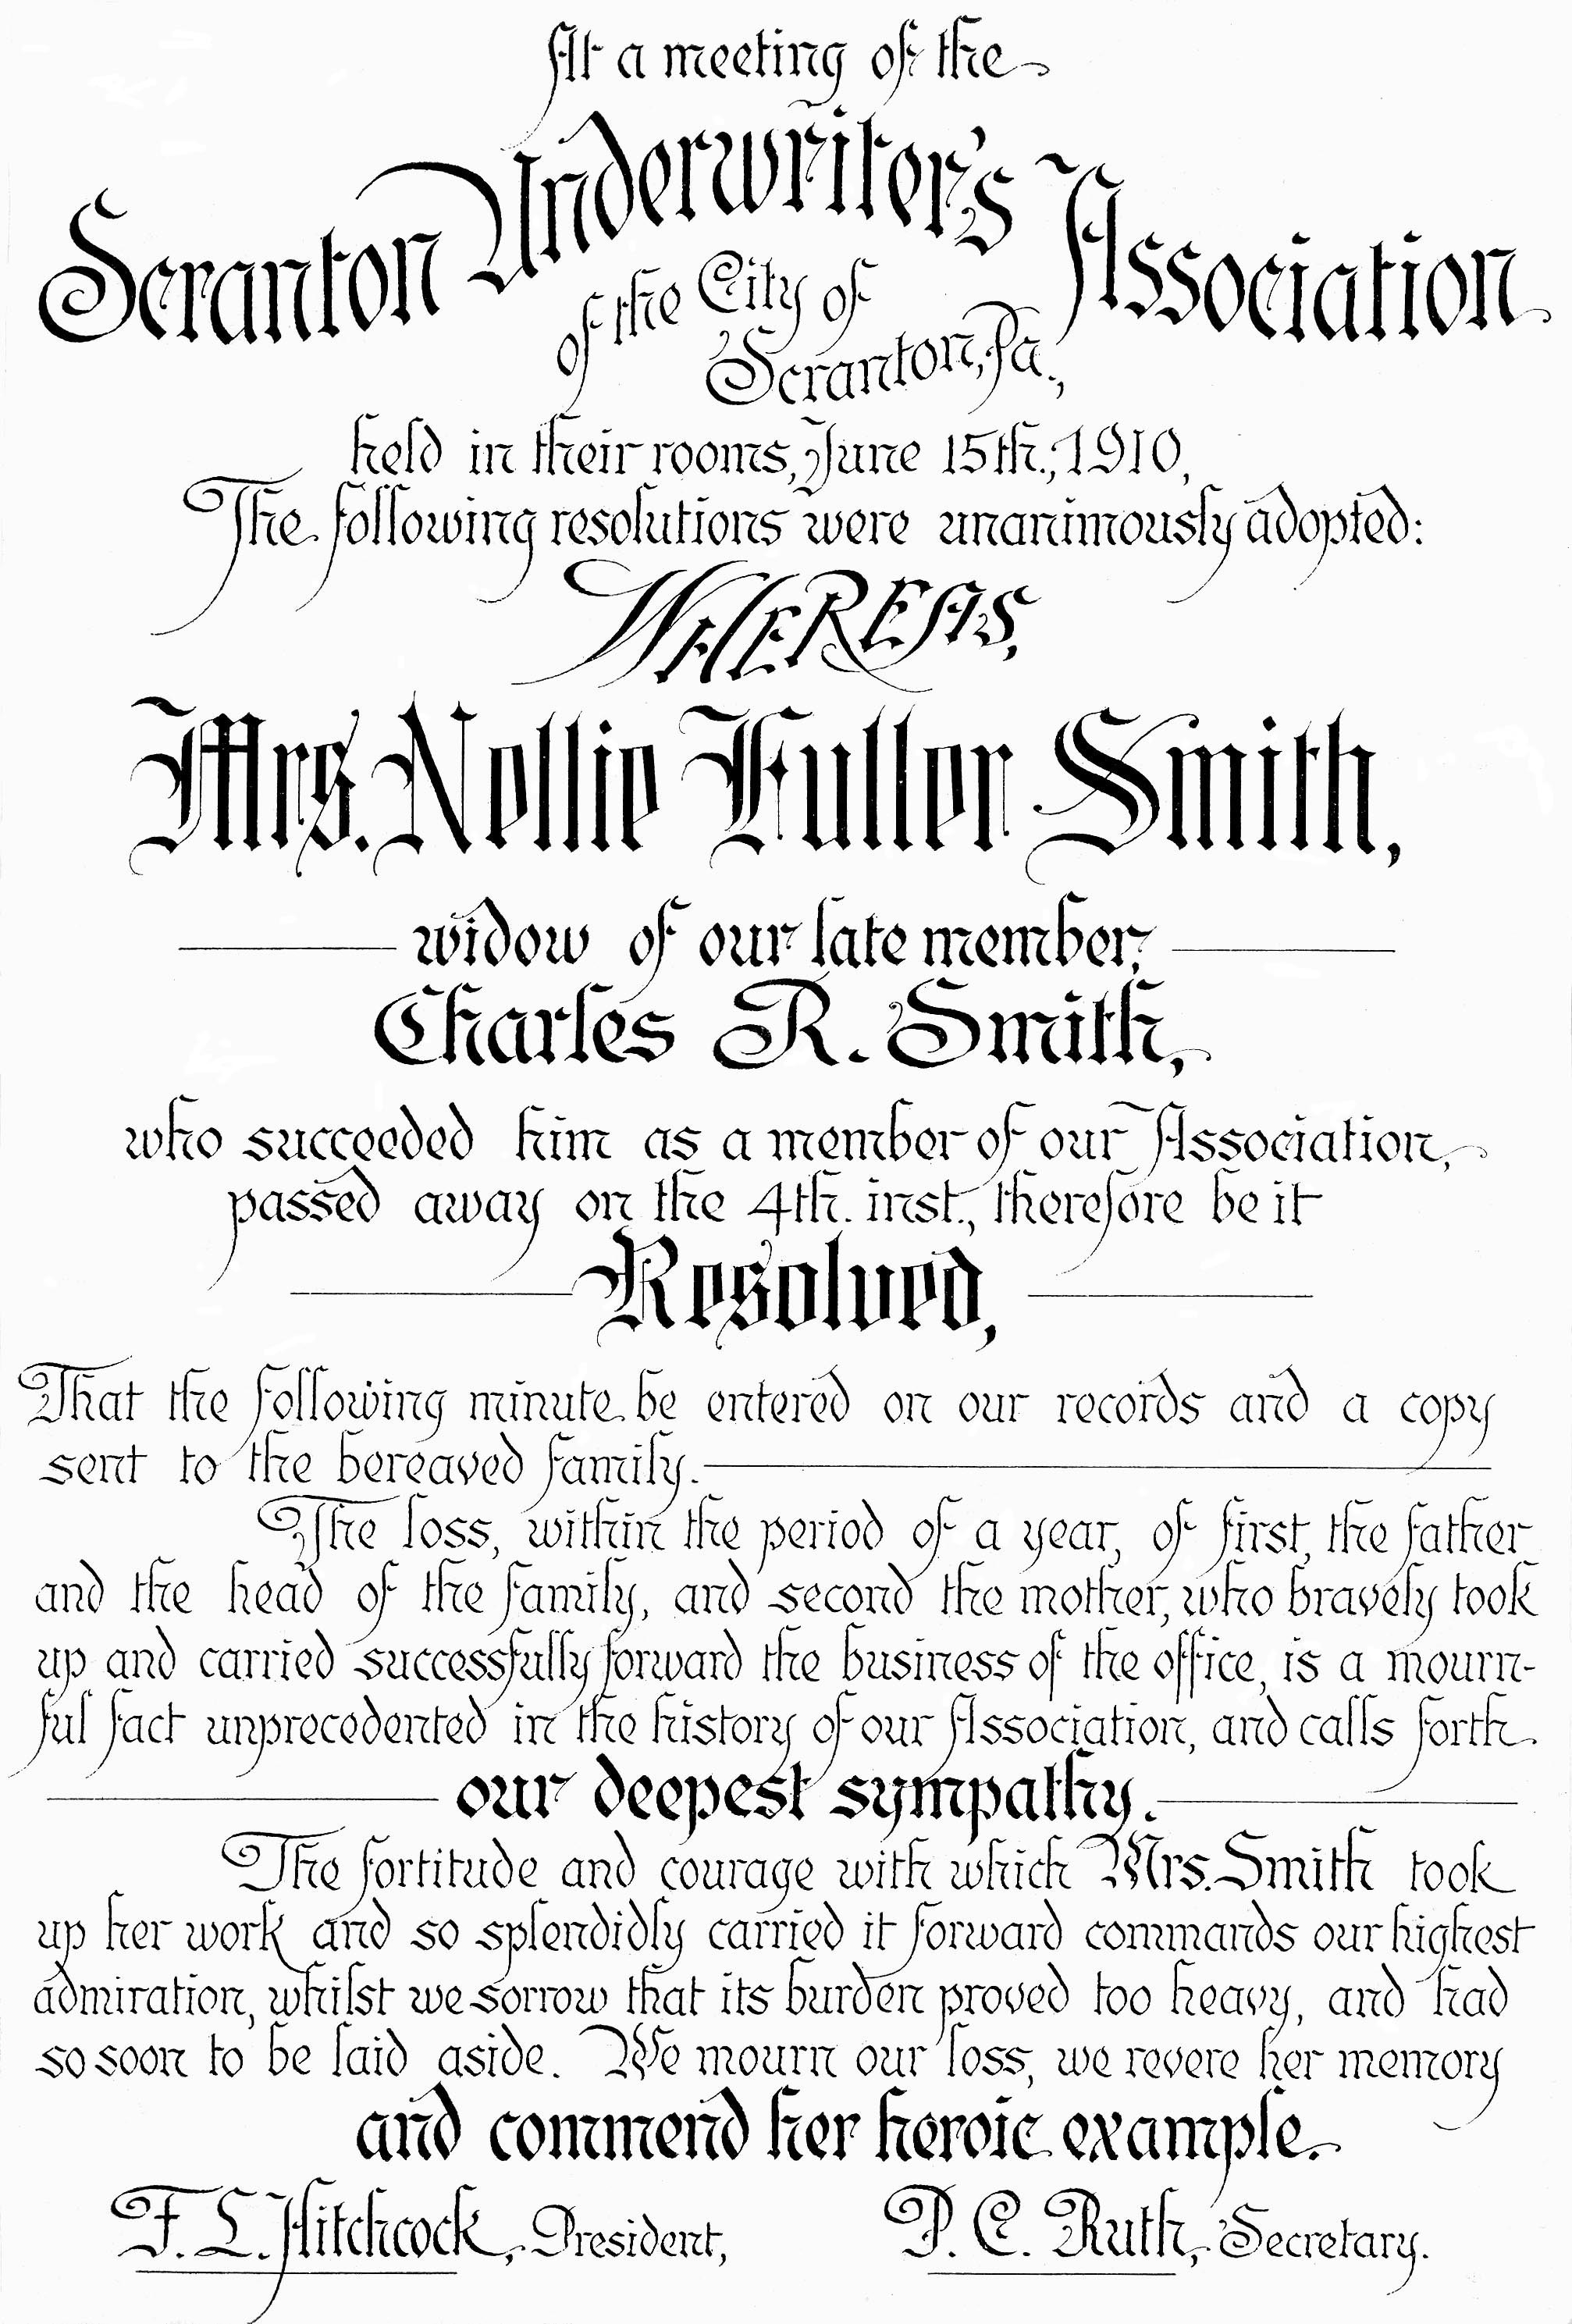 At a meeting of the
Scranton Underwriter's Association
of the City of
Scranton, Pa.,
held in their rooms, June 15th., 1910,
The following resolutions were unanimously adopted:
WHEREAS,
Mrs. Nellie Fuller Smith,
widow of our late member,
Charles R. Smith,
who succeeded him as a member of our Association,
passed away on the 4th. inst., therefore be it
Resolved,
That the following minute be entered on our records and a copy
sent to the bereaved family.
The loss, within the period of a year, of first, the father
and the head of the family, and second the mother, who bravely took
up and carried successfully forward the business of the office, is a mourn-
ful fact unprecedented in the history of our Association, and calls forth
our deepest sympathy.
The fortitude and courage with which Mrs. Smith took
up her work and so splendidly carried it forward commands our highest
admiration, whilst we sorrow that its burden proved too heavy, and had
so soon to be laid aside. We mourn our loss, we revere her memory
and commend her heroic example.
F. L. Hitchcock, President, P. C. Ruth, Secretary.